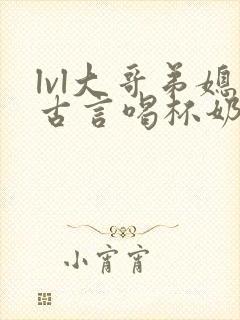 lvl大哥弟媳
古言喝杯奶
小宵宵